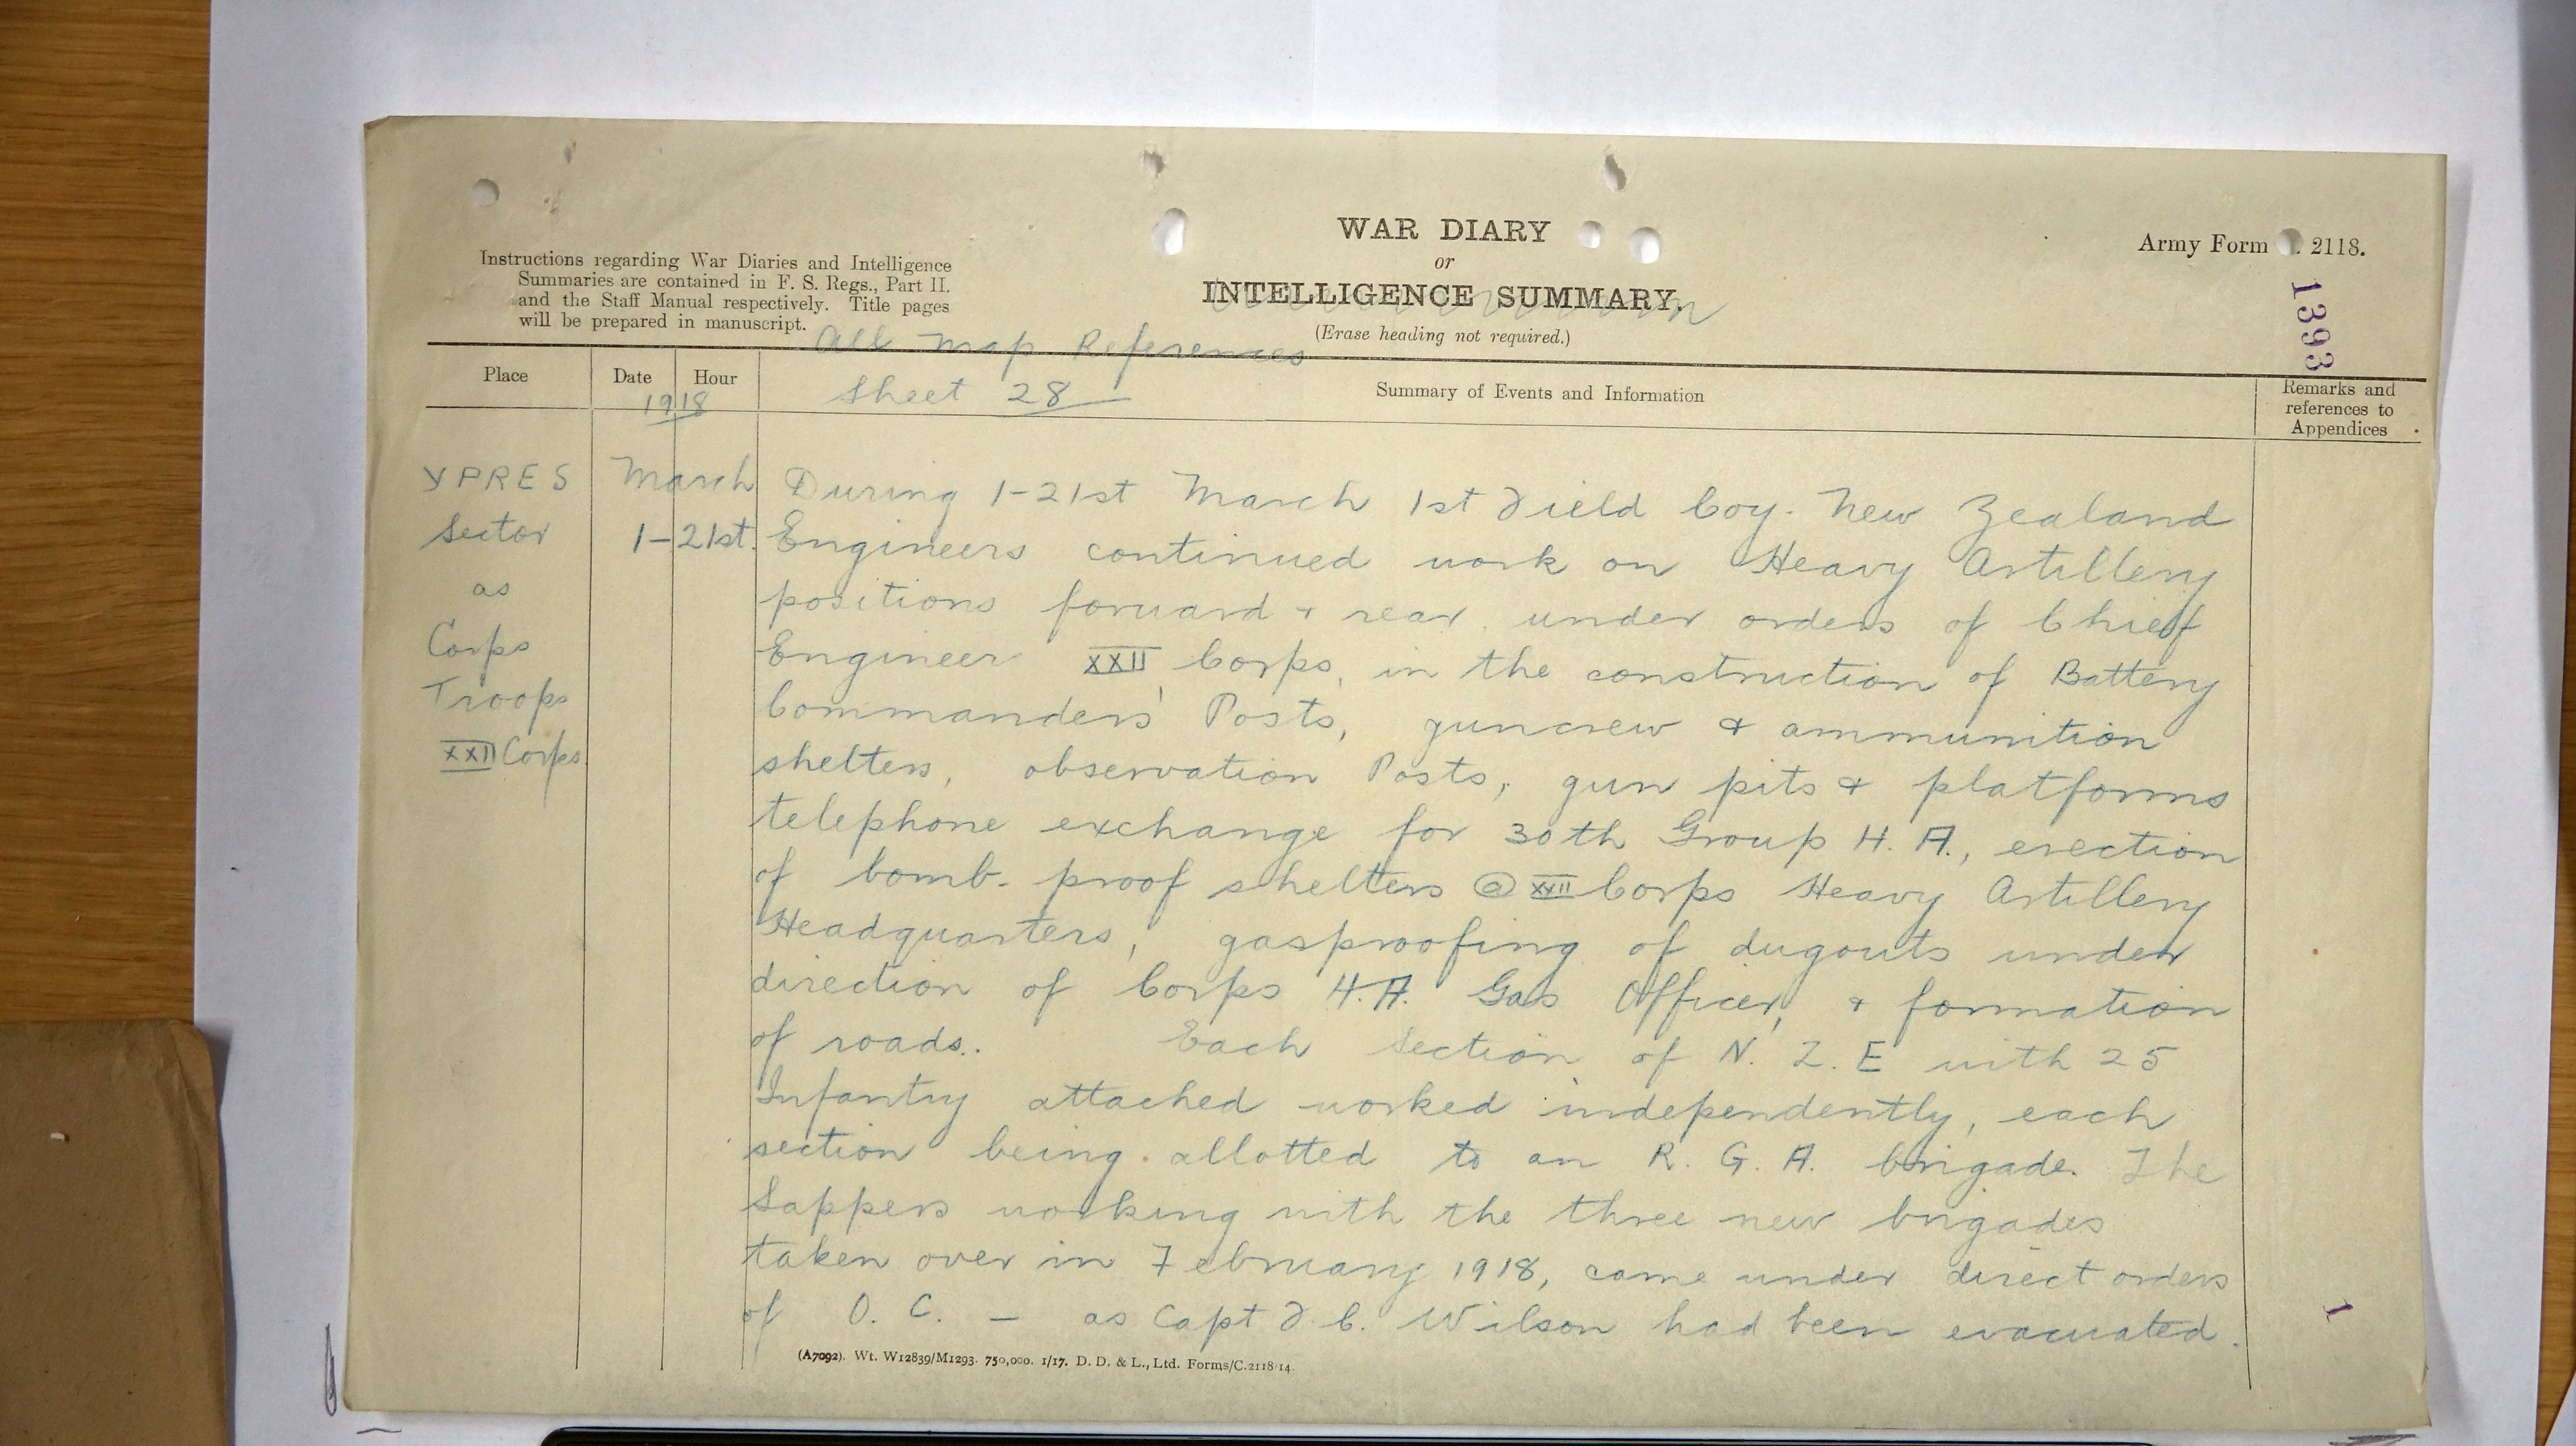 WAR DIARY
or
INTELLIGENCE SUMMARY.
(Erase heading not required.)
Army Form . 2118.
1393
Instructions regarding War Diaries and Intelligence
Summaries are contained in F. S. Regs., Part II.
and the Staff Manual respectively. Title pages
will be prepared in manuscript.
All Map References
Sheet 28
Place
Date
Hour
1918
Summary of Events and Information
Remarks and
references to
Appendices
YPRES
Sector
as
Corps
Troops
XXII Corps
March
1-21st.
During 1-21st March 1st Field Coy. New Zealand
Engineers continued work on Heavy Artillery
positions forward + rear under orders of Chief
Engineer XXII Corps, in the construction of Battery
Commanders' Posts, guncrew & ammunition
shelters, observation Posts, gun pits & platforms
telephone exchange for 30th Group H. A., erection
of bomb-proof shelters @ XXII Corps Heavy Artillery
Headquarters, gasproofing of dugouts under
direction of Corps H.A. Gas Officer, + formation
of roads. Each Section of N. Z. E with 25
Infantry attached worked independently, each
section being allotted to an R. G. A. brigade. The
Sappers working with the three new brigades
taken over in February 1918, came under direct orders
of O. C. — as Capt F. C. Wilson had been evacuated.
1
(A7092). Wt. W12839/M1293. 750,000. 1/17. D. D. & L., Ltd. Forms/C.2118/14.